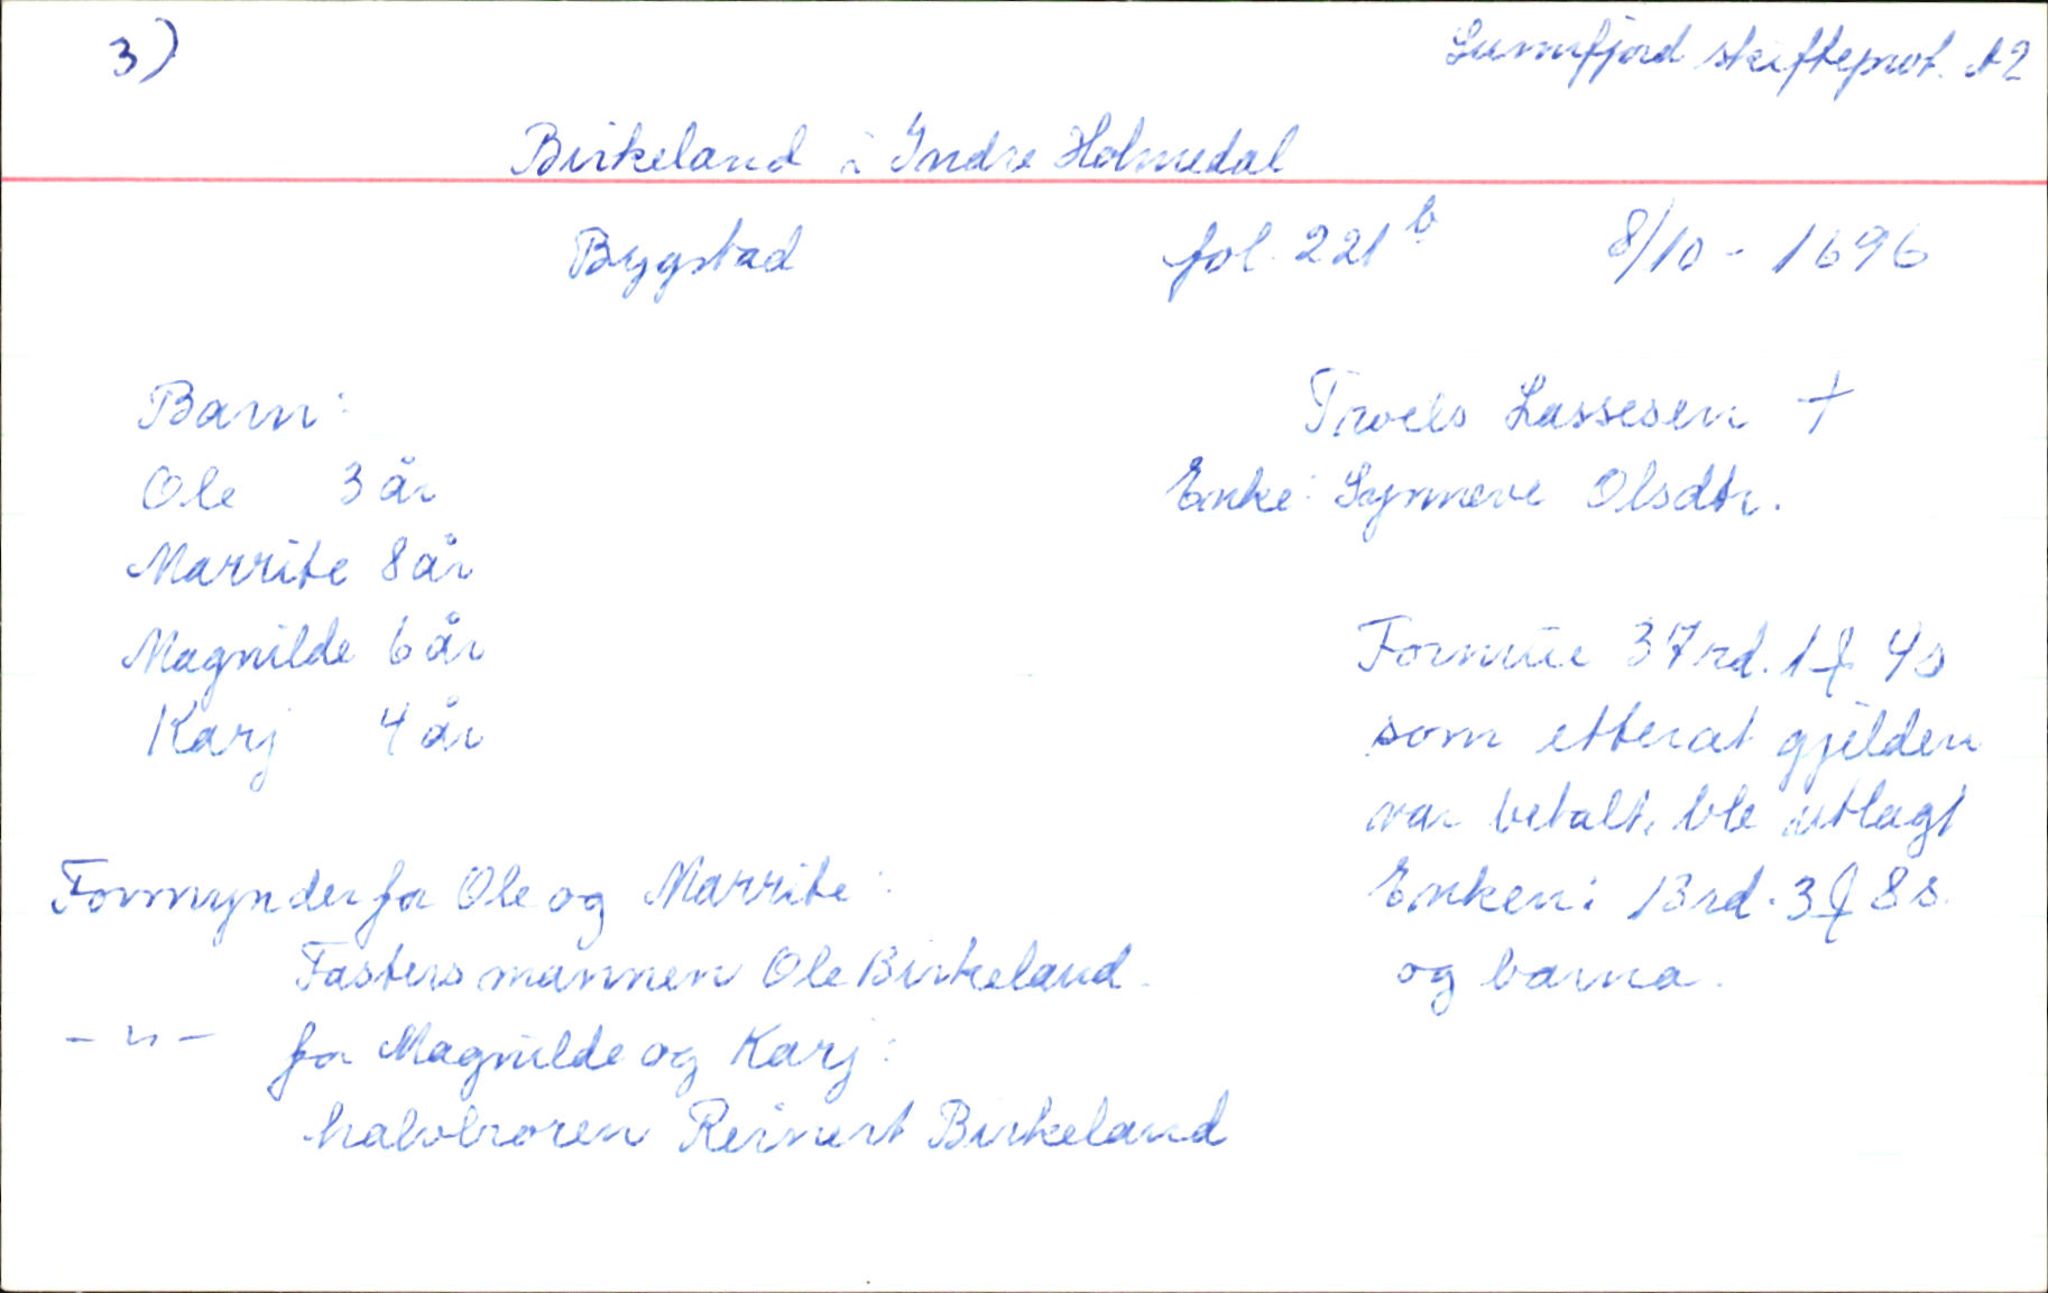 3)
Sunnfjord skifteprot. A2
Birkeland i Indre Holmedal
Bygstad fol. 221 b 8/10 - 1696
Barn:
Ole 3 år
Marrite 8 år
Magnilde 6 år
Karj 4 år
Troels Lassesen +
Enke: Synneve Olsdtr.
Formue 37 rd. 1 ƒ 4 s
som etterat gjelden
var betalt, ble utlagt
Enken: 13 rd. 3 ƒ 8 s.
og barna.
Formynder for Ole og Marrite:
Fasters mannen Ole Birkeland.
- " - for Magnilde og Karj:
halvbroren Reinert Birkeland